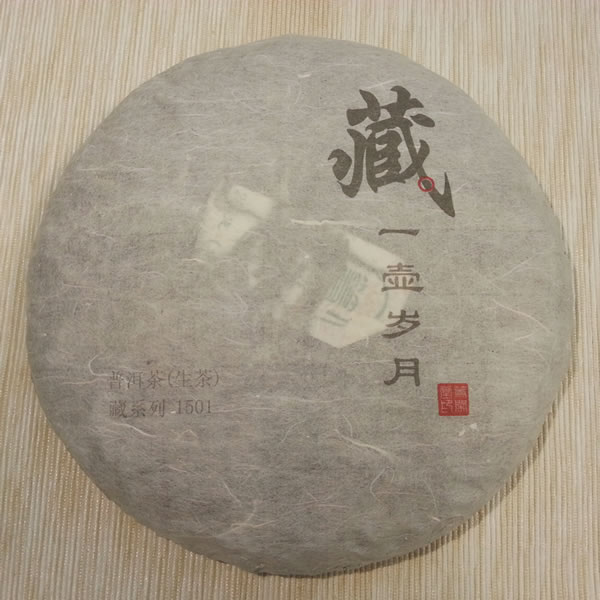 藏
一壶岁月
普洱茶(生茶)
藏系列 1501